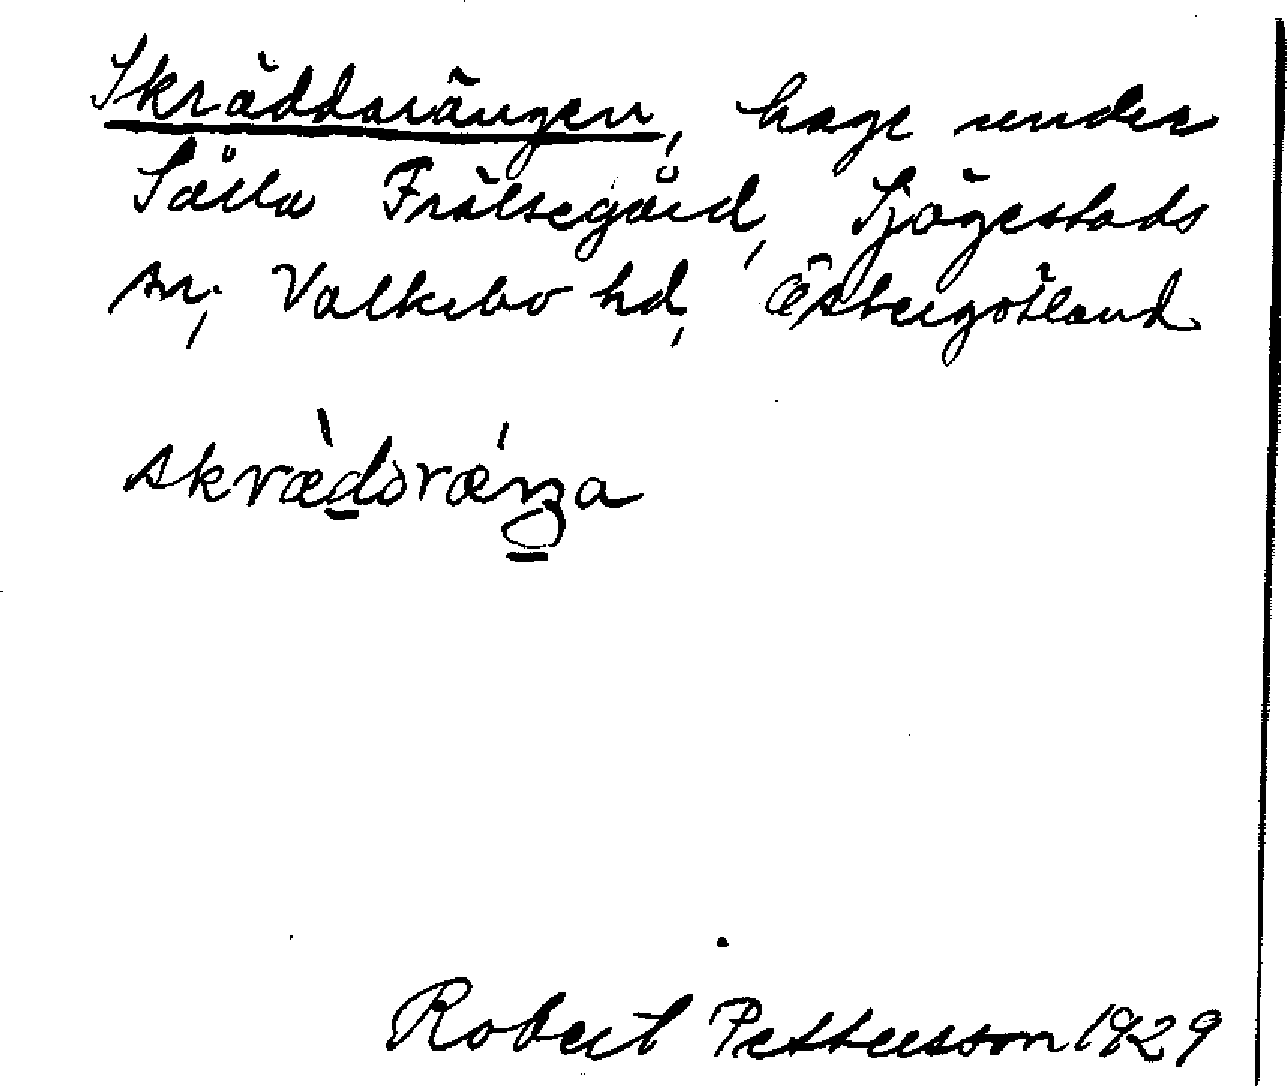 Skräddarängen, hage under
Sålla Frälsegård, Sjögestads
sn, Valkebo hd, Östergötland
skræ̀dɔrǽŋa
Robert Pettersson 1929